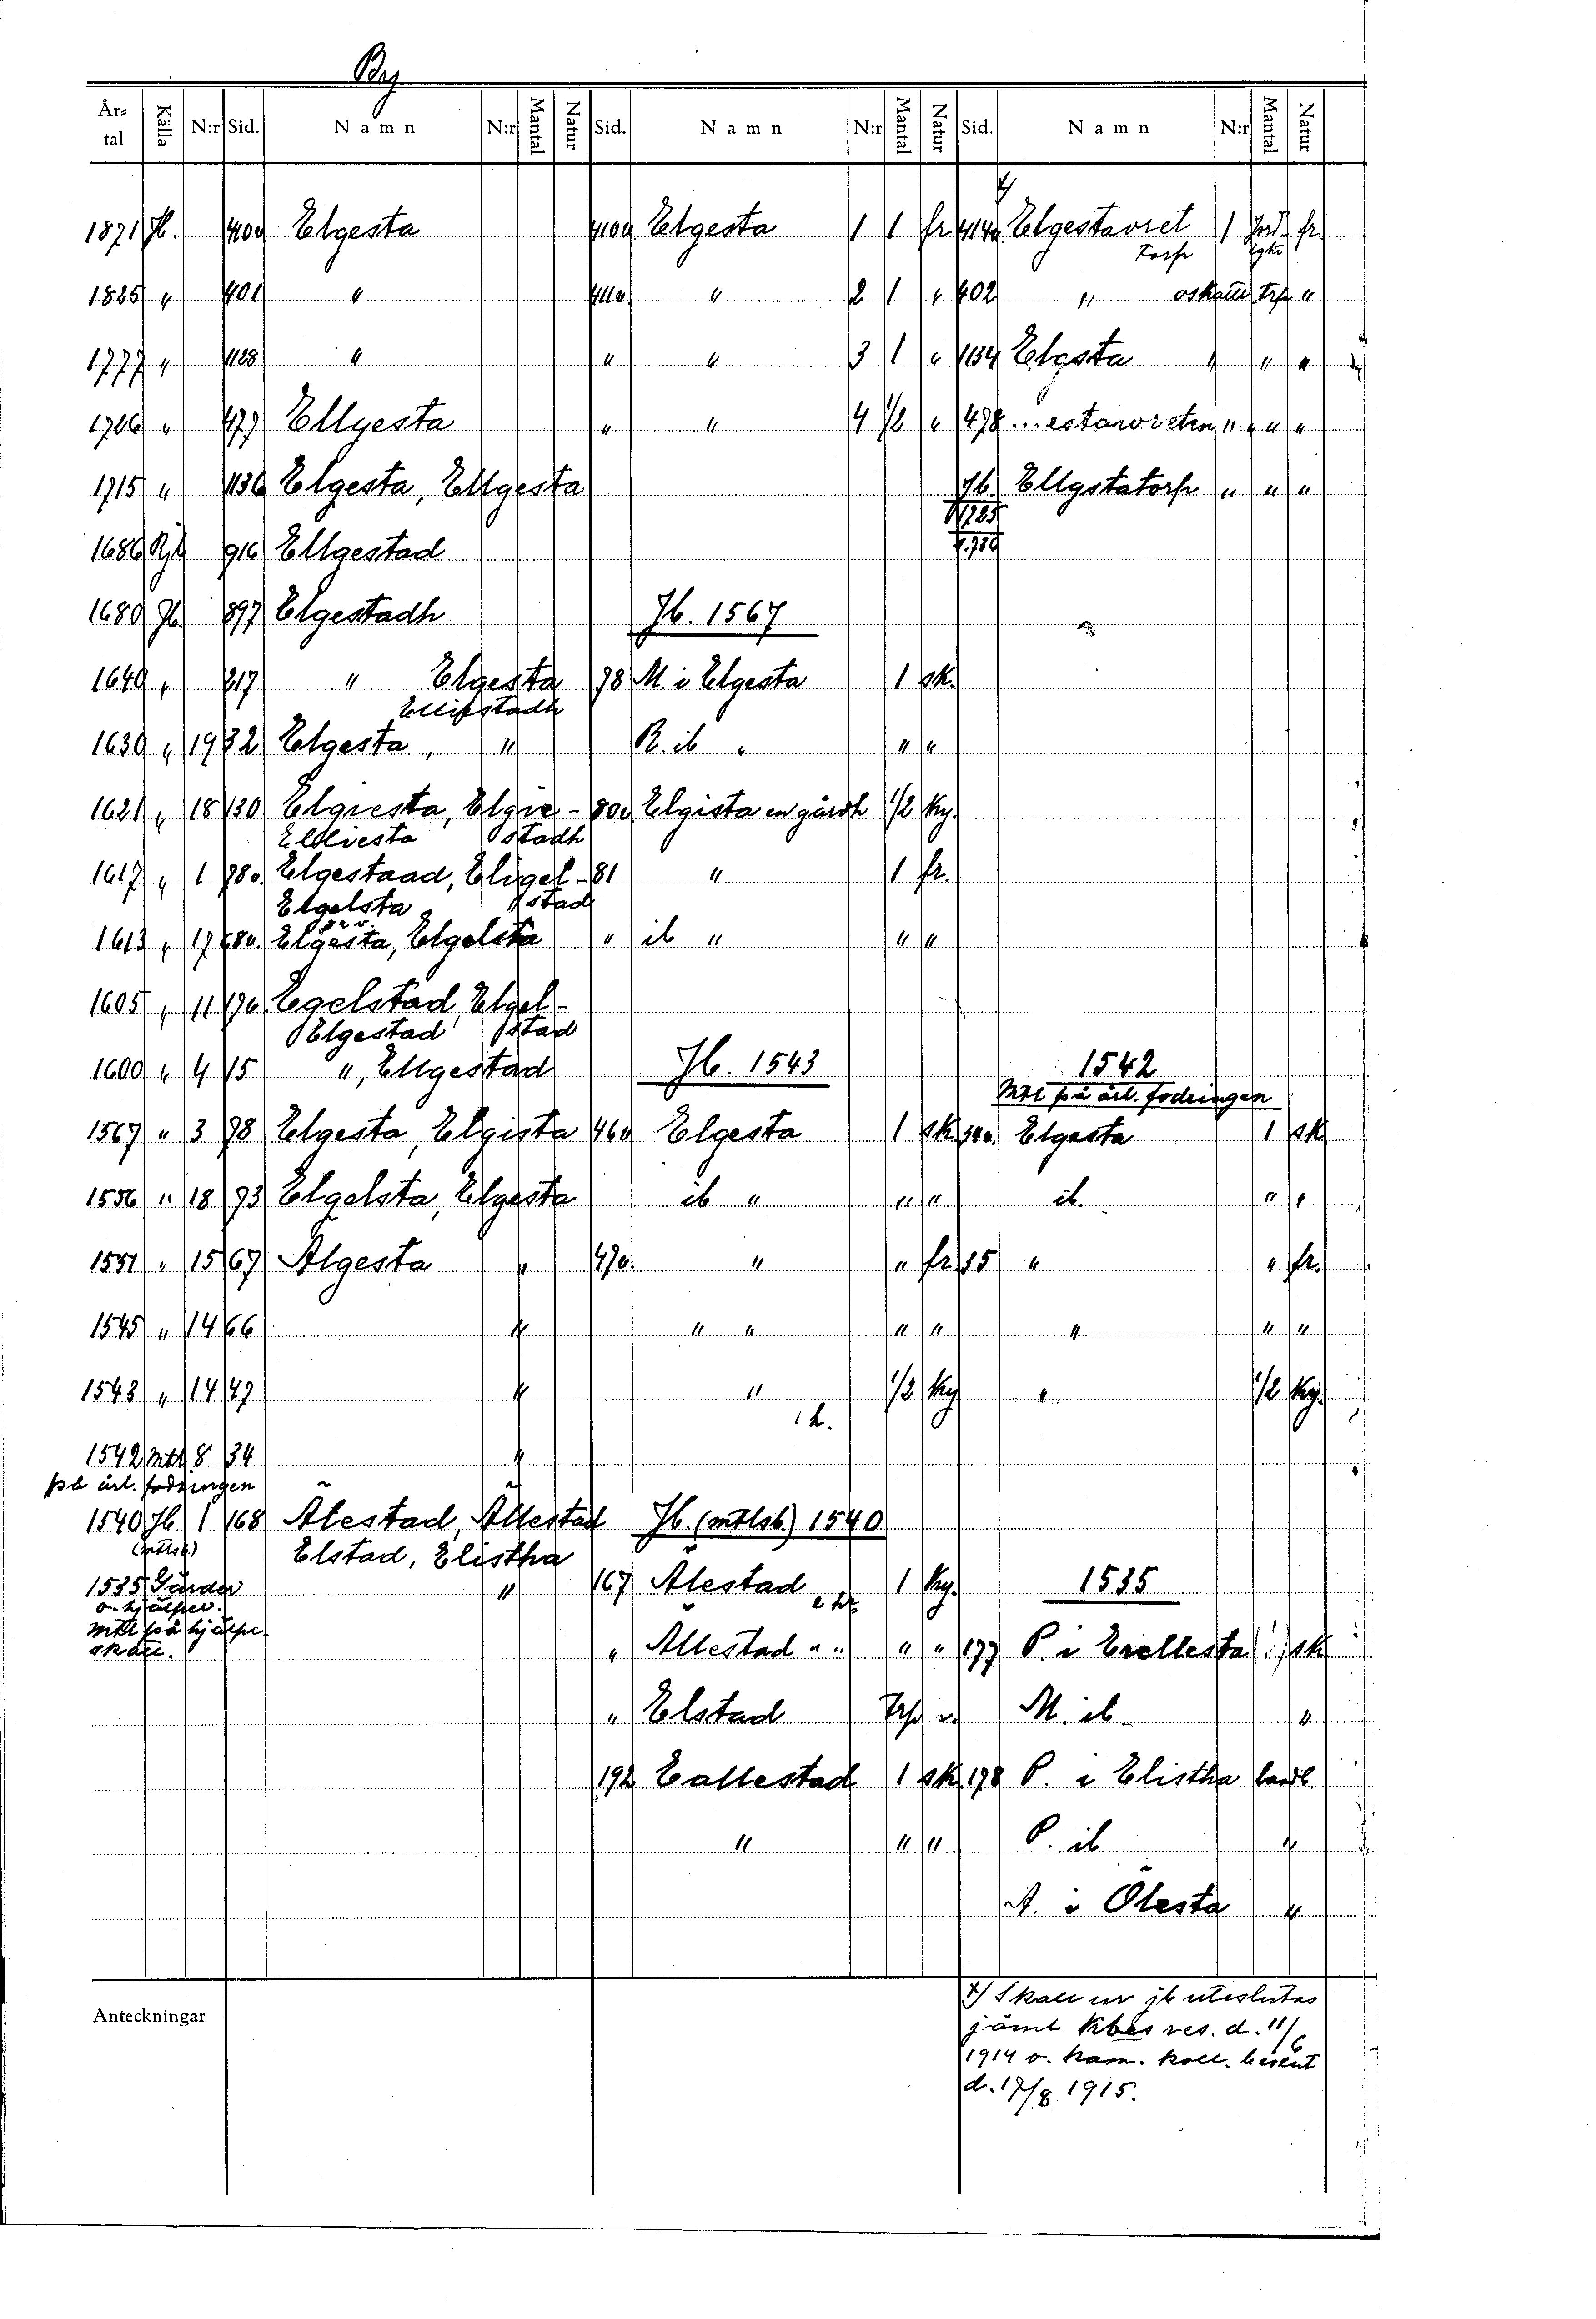 By
År-tal Källa N:r Sid. Namn N:r Mantal Natur Sid. Namn N:r Mantal Natur Sid. Namn N:r Mantal Natur
x/
1871 Jb. 400v Elgesta 410v Elgesta 1 1 fr. 414v Elgestavret 1 Jord fr.
Torp Lght
1825 " 401 " 411v " 2 1 " 402 " oskatt Trp "
1777 " 1128 " " " 3 1 " 1134 Elgsta " " "
1726 " 477 Ellgesta " " 4 1/2 " 478 ...estavreten " " " "
1715 " 1136 Elgesta, Ellgesta Jb. Ellgstatorp " " "
1725
1686 Rjb 916 Ellgestad
1680 Jb. 897 Elgestadh Jb. 1567
1640 " 217 " Elgesta 78 M. i Elgesta 1 sk.
Ellgestadh
1630 " 19 32 Elgesta, " R. ib " " "
1621 " 18 130 Elgiesta, Elgie- 80v Elgista en gårdh 1/2 Ky.
Elliesta stadh
1617 " 1 78v. Elgestaad, Eligel- 81 " 1 fr.
Elgelsta stad
1613 " 17 68v. Elgesta, Elgelsta " ib " " "
1605 " 11 176 Egelstad, Elgel-
Elgestad stad
1600 " 4 15 ", Ellgestad Jb. 1543 1542
Mtl på årl. fodringen
1567 " 3 78 Elgesta, Elgista 46v Elgesta 1 sk. 34v. Elgesta 1 sk
1556 " 18 73 Elgelsta, Elgesta ib " " " ib. " "
1551 " 15 67 Älgesta " 47v " " fr. 35 " " fr.
1545 " 14 66 " " " " " " " "
1543 " 14 47 " " 1/2 Ky " 1/2 Ky.
1542 Mtl 8 34 "
på årl. fodringen
1540 Jb. 1 168 Älestad, Ällestad Jb. (mtlsb.) 1540
(mtlsb.) Elstad, Elistha
1535 Gärder " 167 Älestad 1 Ky. 1535
o. hjälper.
Mtl på hjälpe " Ällestad " " " " 177 P. i Erellesta sk
skatt.
" Elstad Trp " M. ib "
192 Eallestad 1 sk 178 P. i Elistha landb.
" " " P. ib "
A. i Ölesta "
Anteckningar
x) Skall ur jb uteslutas
jäml Kbs res. d. 11/6
1914 o. kam. koll. beslut
d. 17/8 1915.